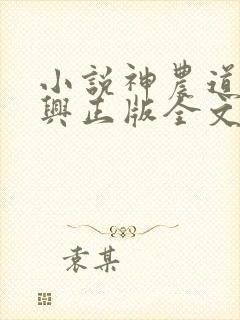 小説神農道
興正版全文
袁某